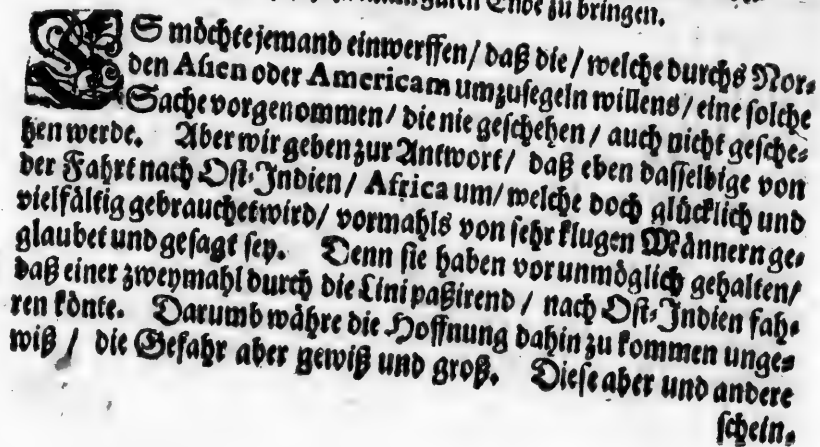 guten Ende zu bringen.
ES möchte jemand einwerffen/ daß die/ welche durchs Nor-
den Asien oder Americam umzusegeln willens/ eine solche
Sache vorgenommen/ die nie geschehen/ auch nicht gesche-
hen werde. Aber wir geben zur Antwort/ daß eben dasselbige von
der Fahrt nach Ost-Indien/ Africa um/ welche doch glücklich und
vielfältig gebrauchet wird/ vormahls von sehr klugen Männern ge-
glaubet und gesagt sey. Denn sie haben vor unmöglich gehalten/
daß einer zweymahl durch die Lini paßirend/ nach Ost-Indien fah-
ren könte. Darumb währe die Hoffnung dahin zu kommen unge-
wiß/ die Gefahr aber gewiß und groß. Diese aber und andere
schein-